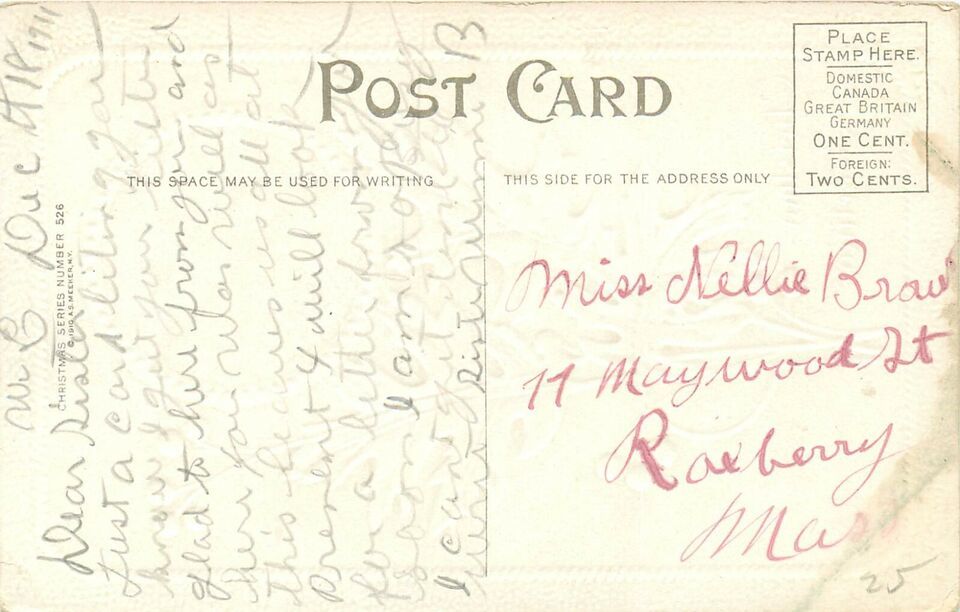 POST CARD
THIS SPACE MAY BE USED FOR WRITING
THIS SIDE FOR THE ADDRESS ONLY
PLACE
STAMP HERE.
DOMESTIC
CANADA
GREAT BRITAIN
GERMANY
ONE CENT.
FOREIGN:
TWO CENTS.
CHRISTMAS SERIES NUMBER 526
© 1910 A.S. MEEKER, N.Y.
1911
Dear Sister
Just a card leting you
know I got your letter
glad to her from you and
her you was well as
this leaves us all at
Present & will look
for a letter from
soon I am
I can't get
your Sister B
Miss Nellie Brow
17 Maywood St
Roxberry
Mas
25